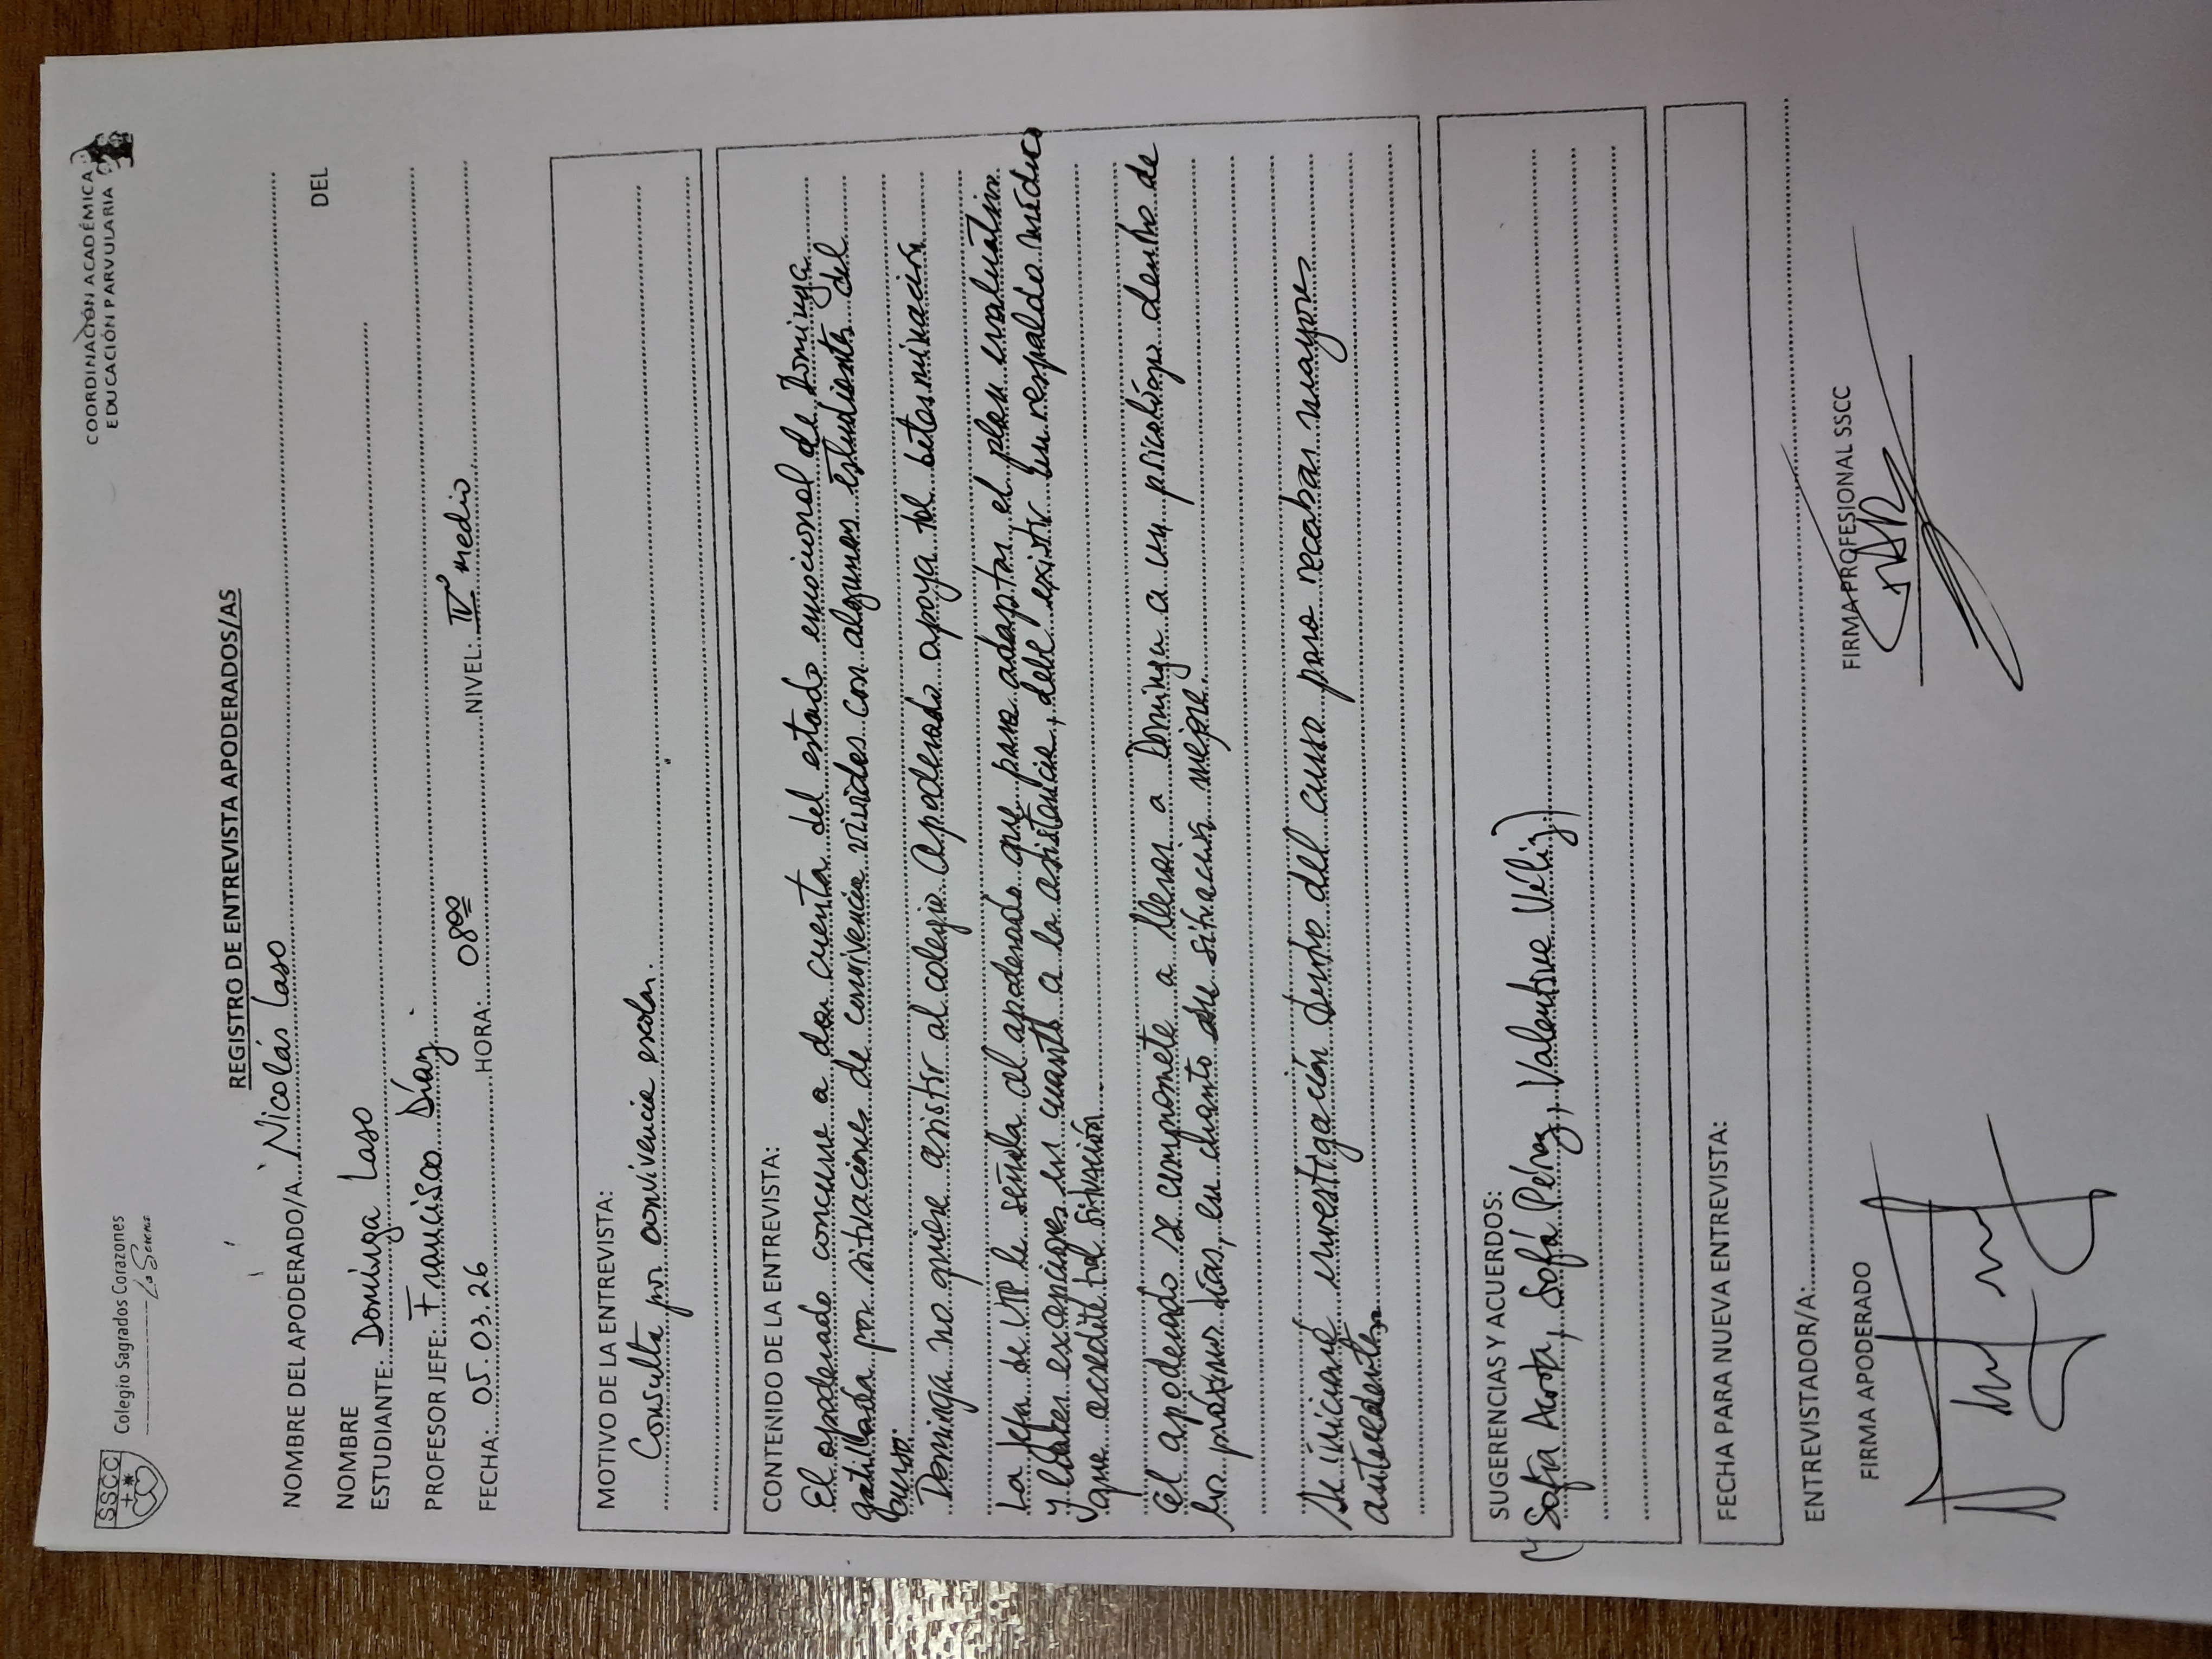 SSCC
Colegio Sagrados Corazones
La Serena
COORDINACIÓN ACADÉMICA
EDUCACIÓN PARVULARIA
REGISTRO DE ENTREVISTA APODERADOS/AS
NOMBRE DEL APODERADO/A: Nicolás Laso
NOMBRE DEL
ESTUDIANTE: Dominga Laso
PROFESOR JEFE: Francisco Díaz
FECHA: 05.03.26 HORA: 08:00 NIVEL: IV° medio
MOTIVO DE LA ENTREVISTA:
Consulta por convivencia escolar.
CONTENIDO DE LA ENTREVISTA:
El apoderado concurre a dar cuenta del estado emocional de Dominga
gatillada por situaciones de convivencia vividas con algunas estudiantes del
curso.
Dominga no quiere asistir al colegio. Apoderado apoya tal determinación
La Jefa de UTP le señala al apoderado que para adaptar el plan evaluativo
y haber excepciones en cuanto a la asistencia, debe existir un respaldo médico
que acredite tal situación.
El apoderado se compromete a llevar a Dominga a un psicólogo dentro de
los próximos días, en cuanto su situación mejore.
Se iniciará investigación dentro del curso para recabar mayores
antecedentes
SUGERENCIAS Y ACUERDOS:
(Sofía Acosta, Sofía Pérez, Valentina Véliz)
FECHA PARA NUEVA ENTREVISTA:
ENTREVISTADOR/A:
FIRMA APODERADO FIRMA PROFESIONAL SSCC